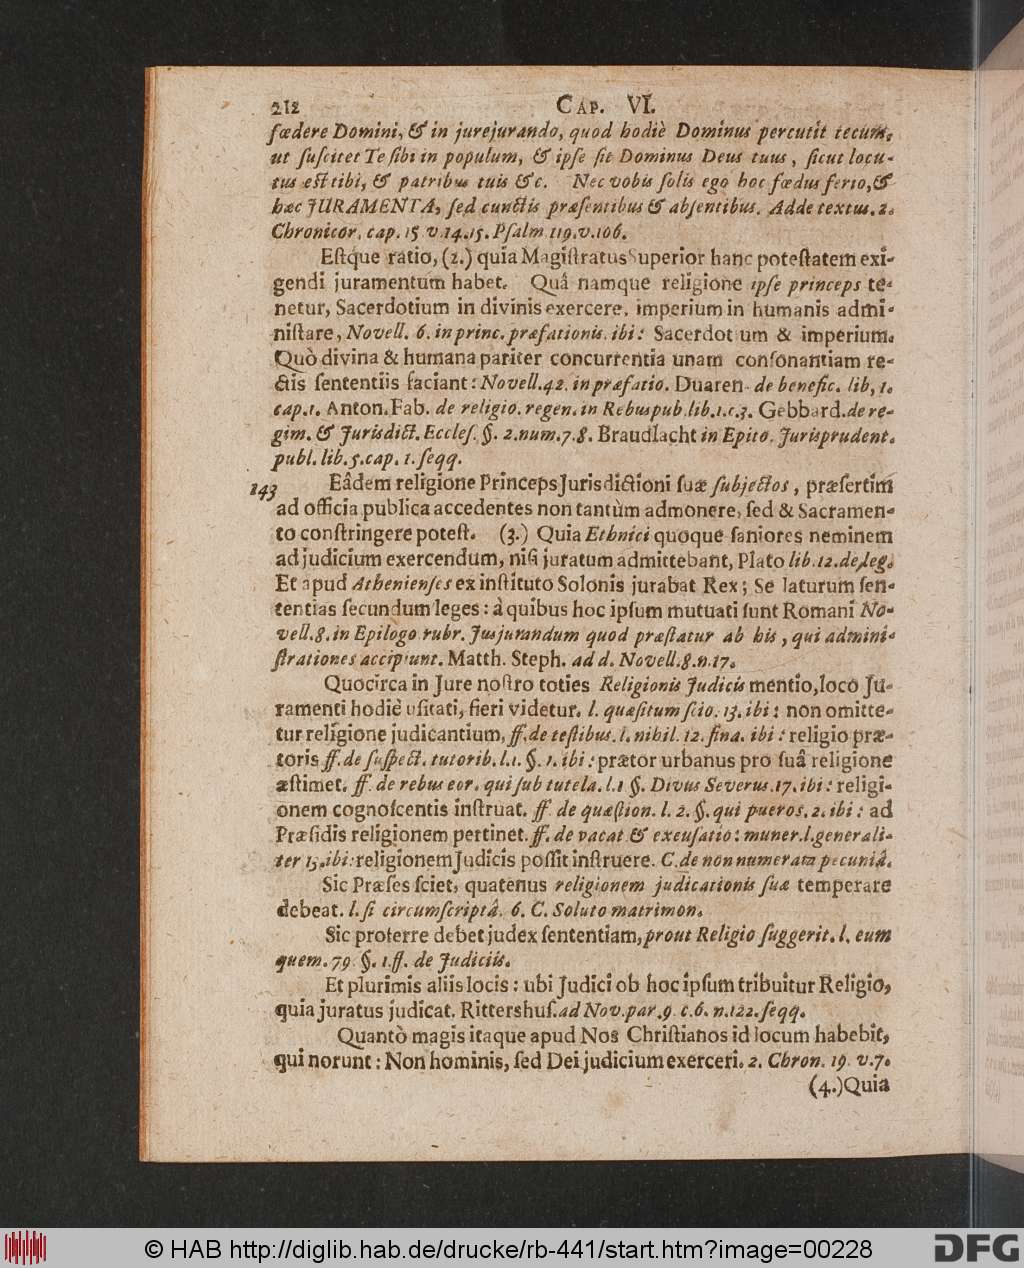 212 CAP. VI.
fœdere Domini, & in jurejurando, quod hodiè Dominus percutit tecum,
ut ſuſcitet Te ſibi in populum, & ipſe ſit Dominus Deus tuus, ſicut locu-
tus eſt tibi, & patribus tuis &c. Nec vobis ſolis ego hoc fœdus ferio, &
hæc JURAMENTA, ſed cunctis præſentibus & abſentibus. Adde textus. 2.
Chronicor. cap. 15 v. 14. 15. Pſalm 119. v. 106.
Eſtque ratio, (2.) quia Magiſtratus Superior hanc poteſtatem exi-
gendi juramentum habet. Quâ namque religione ipſe princeps te-
netur, Sacerdotium in divinis exercere, imperium in humanis admi-
niſtare, Novell. 6. in princ. præfationis. ibi: Sacerdotium & imperium.
Quò divina & humana pariter concurrentia unam conſonantiam re-
ctis ſententiis faciant: Novell. 42. in præfatio. Duaren. de benefic. lib, 1.
cap. 1. Anton. Fab. de religio. regen. in Rebuspub. lib. 1. c. 3. Gebbard. de re-
gim. & Jurisdict. Eccleſ. §. 2. num. 7. 8. Braudlacht in Epito. Jurisprudent.
publ. lib. 5. cap. 1. ſeqq.
143 Eâdem religione Princeps Jurisdictioni ſuæ ſubjectos, præſertim
ad officia publica accedentes non tantùm admonere, ſed & Sacramen-
to conſtringere poteſt. (3.) Quia Ethnici quoque ſaniores neminem
ad judicium exercendum, niſi juratum admittebant, Plato lib. 12. de leg.
Et apud Athenienſes ex inſtituto Solonis jurabat Rex; Se laturum ſen-
tentias ſecundum leges: à quibus hoc ipſum mutuati ſunt Romani No-
vell. 8. in Epilogo rubr. Jusjurandum quod præſtatur ab his, qui admini-
ſtrationes accipiunt. Matth. Steph. ad d. Novell. 8. n. 17.
Quocirca in Jure noſtro toties Religionis Judicis mentio, loco Ju-
ramenti hodiè uſitati, fieri videtur. l. quæſitum ſcio. 13. ibi: non omitte-
tur religione judicantium, ff. de teſtibus. l. nihil. 12. fina. ibi: religio præ-
toris ff. de ſuſpect. tutorib. l. 1. §. 1. ibi: prætor urbanus pro ſuâ religione
æſtimet. ff. de rebus eor. qui ſub tutela. l. 1 §. Divus Severus. 17. ibi: religi-
onem cognoſcentis inſtruat. ff. de quæſtion. l. 2. §. qui pueros. 2. ibi: ad
Præſidis religionem pertinet. ff. de vacat & excuſatio: muner. l. generali-
ter 13. ibi: religionem Judicis poſſit inſtruere. C. de non numerata pecuniâ.
Sic Præſes ſciet, quatenus religionem judicationis ſuæ temperare
debeat. l. ſi circumſcriptâ. 6. C. Soluto matrimon.
Sic proferre debet judex ſententiam, prout Religio ſuggerit. l. eum
quem. 79. §. 1. ff. de Judiciis.
Et plurimis aliis locis: ubi Judici ob hoc ipſum tribuitur Religio,
quia juratus judicat. Rittershuſ. ad Nov. par. 9. c. 6. n. 122. ſeqq.
Quantò magis itaque apud Nos Chriſtianos id locum habebit,
qui norunt: Non hominis, ſed Dei judicium exerceri. 2. Chron. 19. v. 7.
(4.) Quia
© HAB http://diglib.hab.de/drucke/rb-441/start.htm?image=00228
DFG